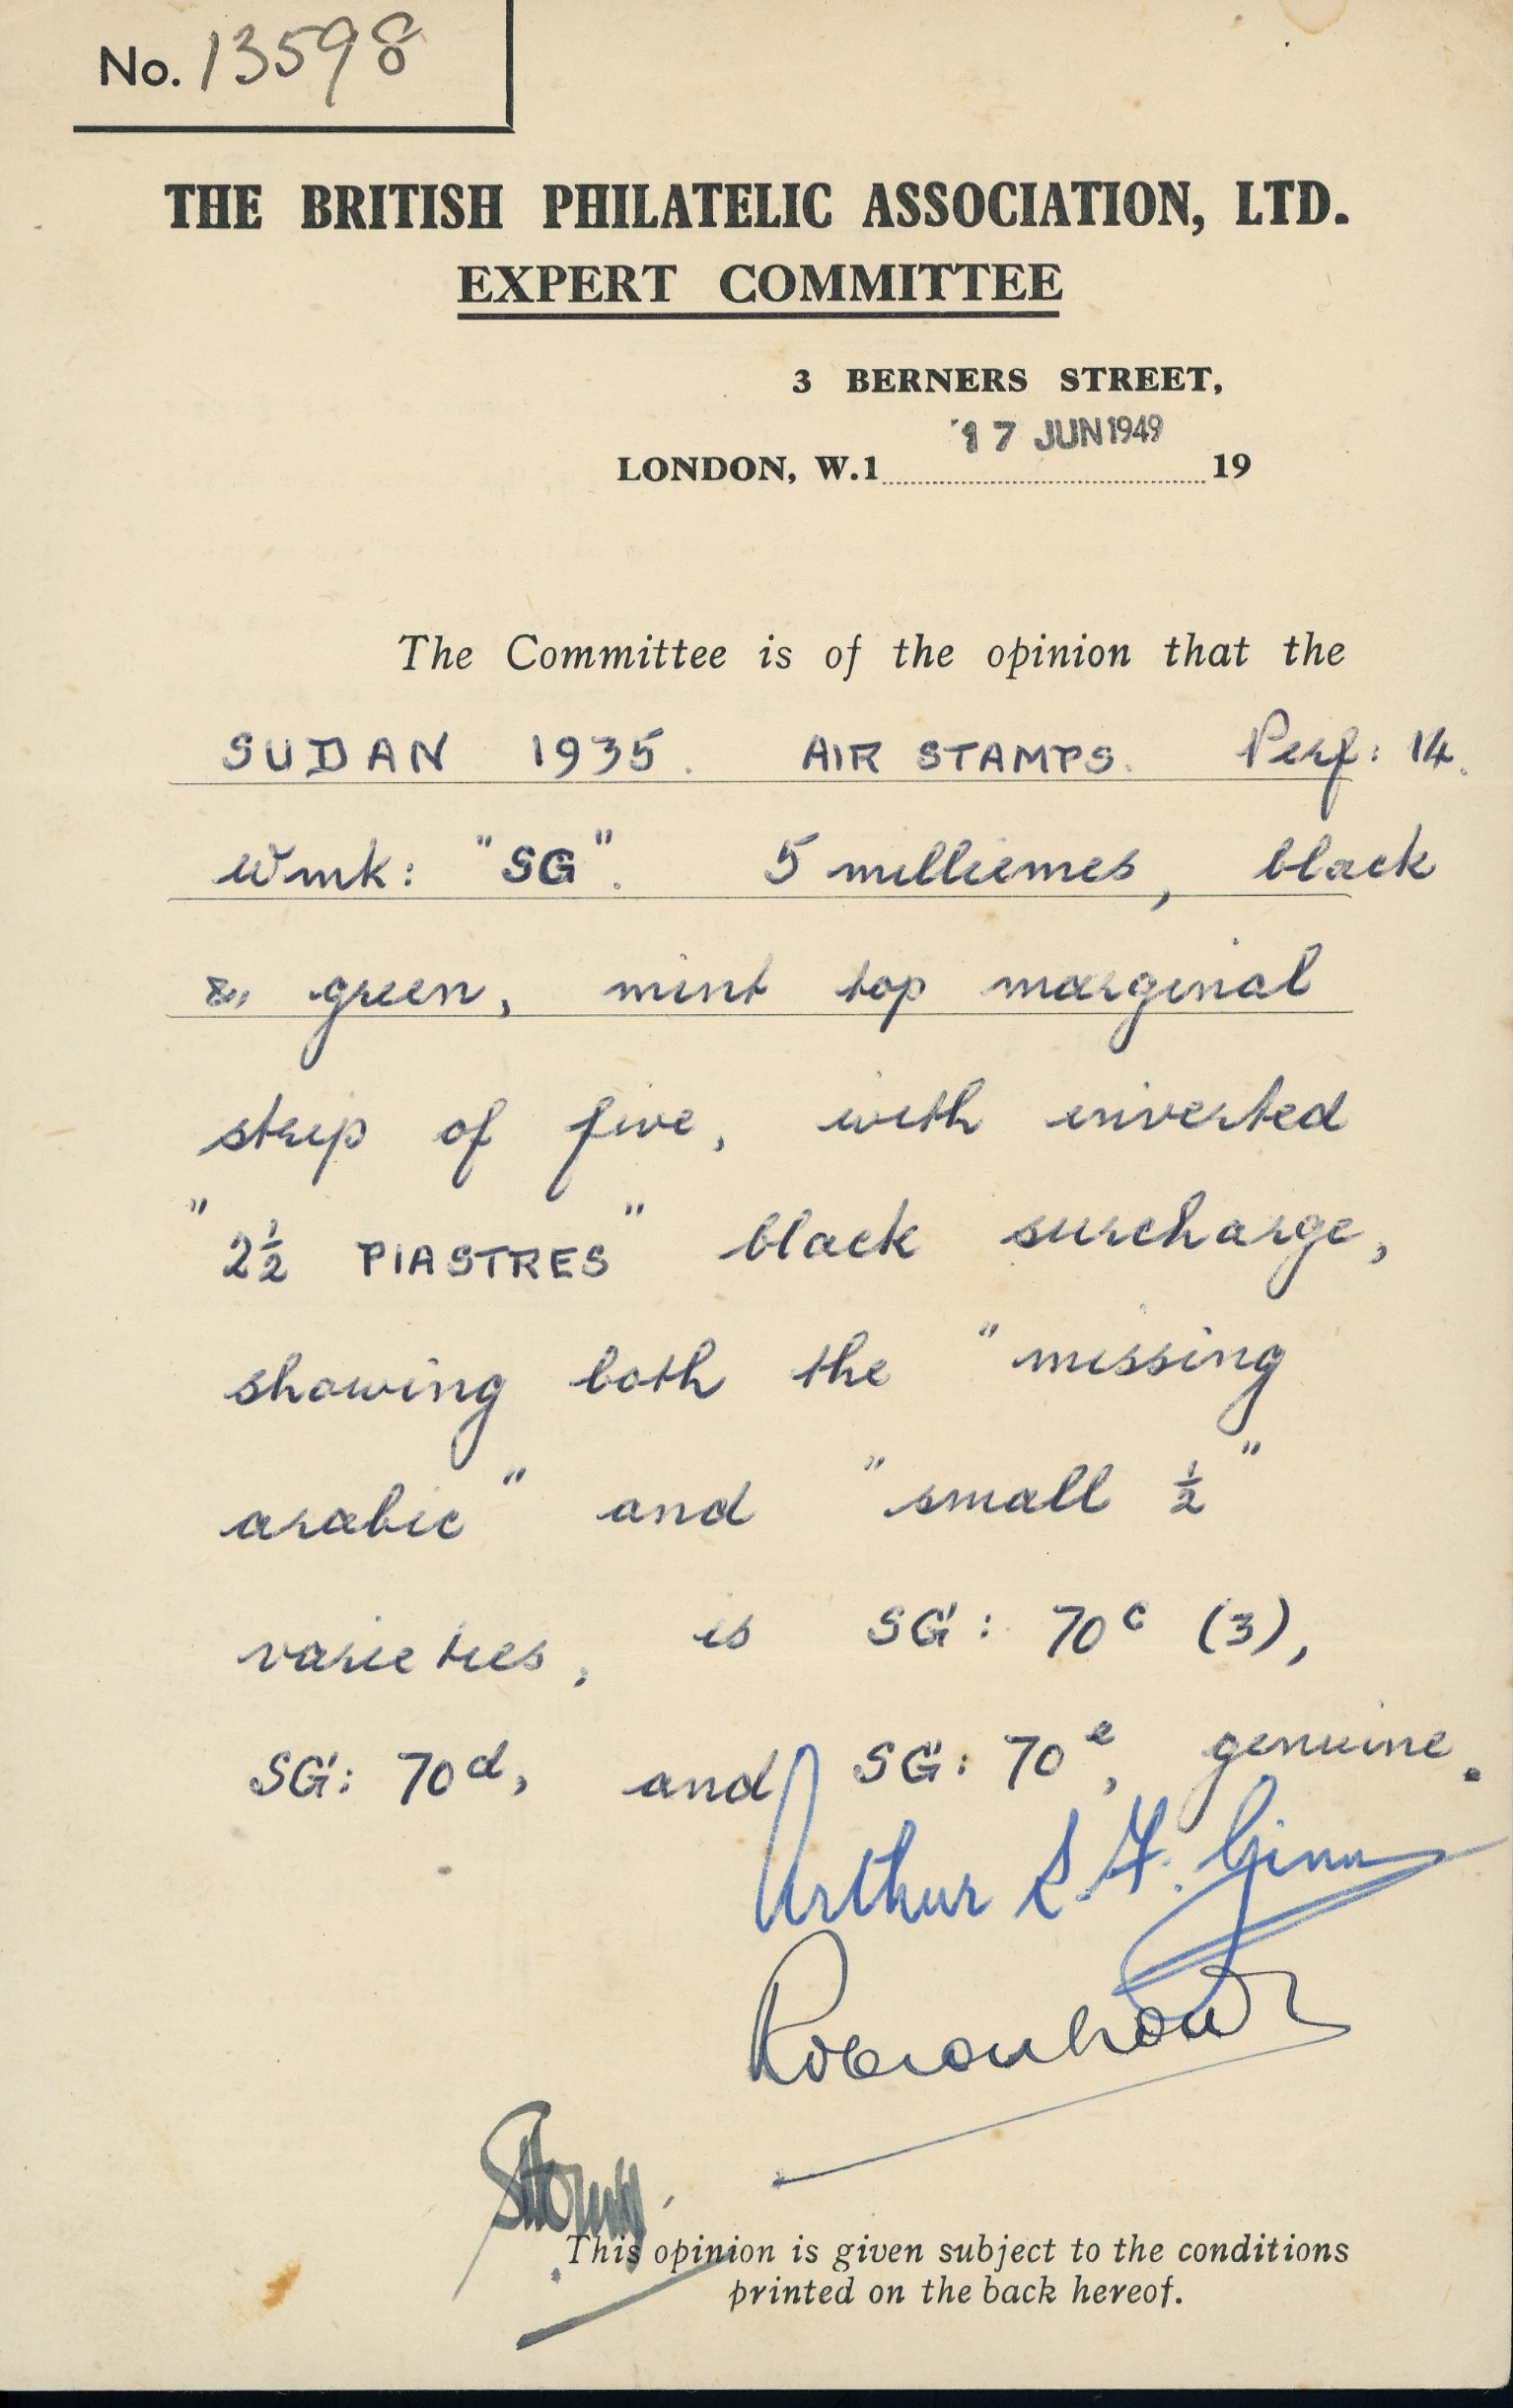 No. 13598
THE BRITISH PHILATELIC ASSOCIATION, LTD.
EXPERT COMMITTEE
3 BERNERS STREET,
17 JUN 1949
LONDON, W.1 19
The Committee is of the opinion that the
SUDAN 1935. AIR STAMPS. Perf: 14.
Wmk: "SG". 5 milliemes, black
& green, mint top marginal
strip of five, with inverted
"2½ PIASTRES" black surcharge,
showing both the "missing
arabic" and "small ½"
varieties, is SG: 70c (3),
SG: 70d, and SG: 70e, genuine.
Arthur L. F. Ginn
This opinion is given subject to the conditions
printed on the back hereof.